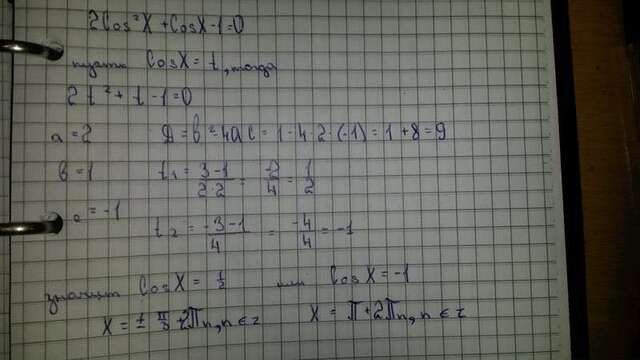 2Cos²X + CosX - 1 = 0
пусть CosX = t, тогда
2t² + t - 1 = 0
a = 2 D = b² - 4ac = 1 - 4·2·(-1) = 1 + 8 = 9
b = 1 t₁ = (3-1)/(2·2) = 2/4 = 1/2
c = -1 t₂ = (-3-1)/4 = -4/4 = -1
значит CosX = 1/2 или CosX = -1
X = ± π/3 + 2Πn, n ∈ z X = Π + 2Πn, n ∈ z